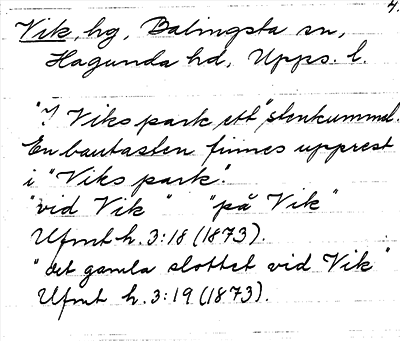 4.
Vik, hg, Balingsta sn,
Hagunda hd, Upps. l.
"I Viks park ett "stenkummel.
En bautasten finnes upprest
i "Viks park".
"vid Vik" "på Vik"
Ufmt h. 3:18 (1873).
"det gamla slottet vid Vik"
Ufmt h. 3:19 (1873).